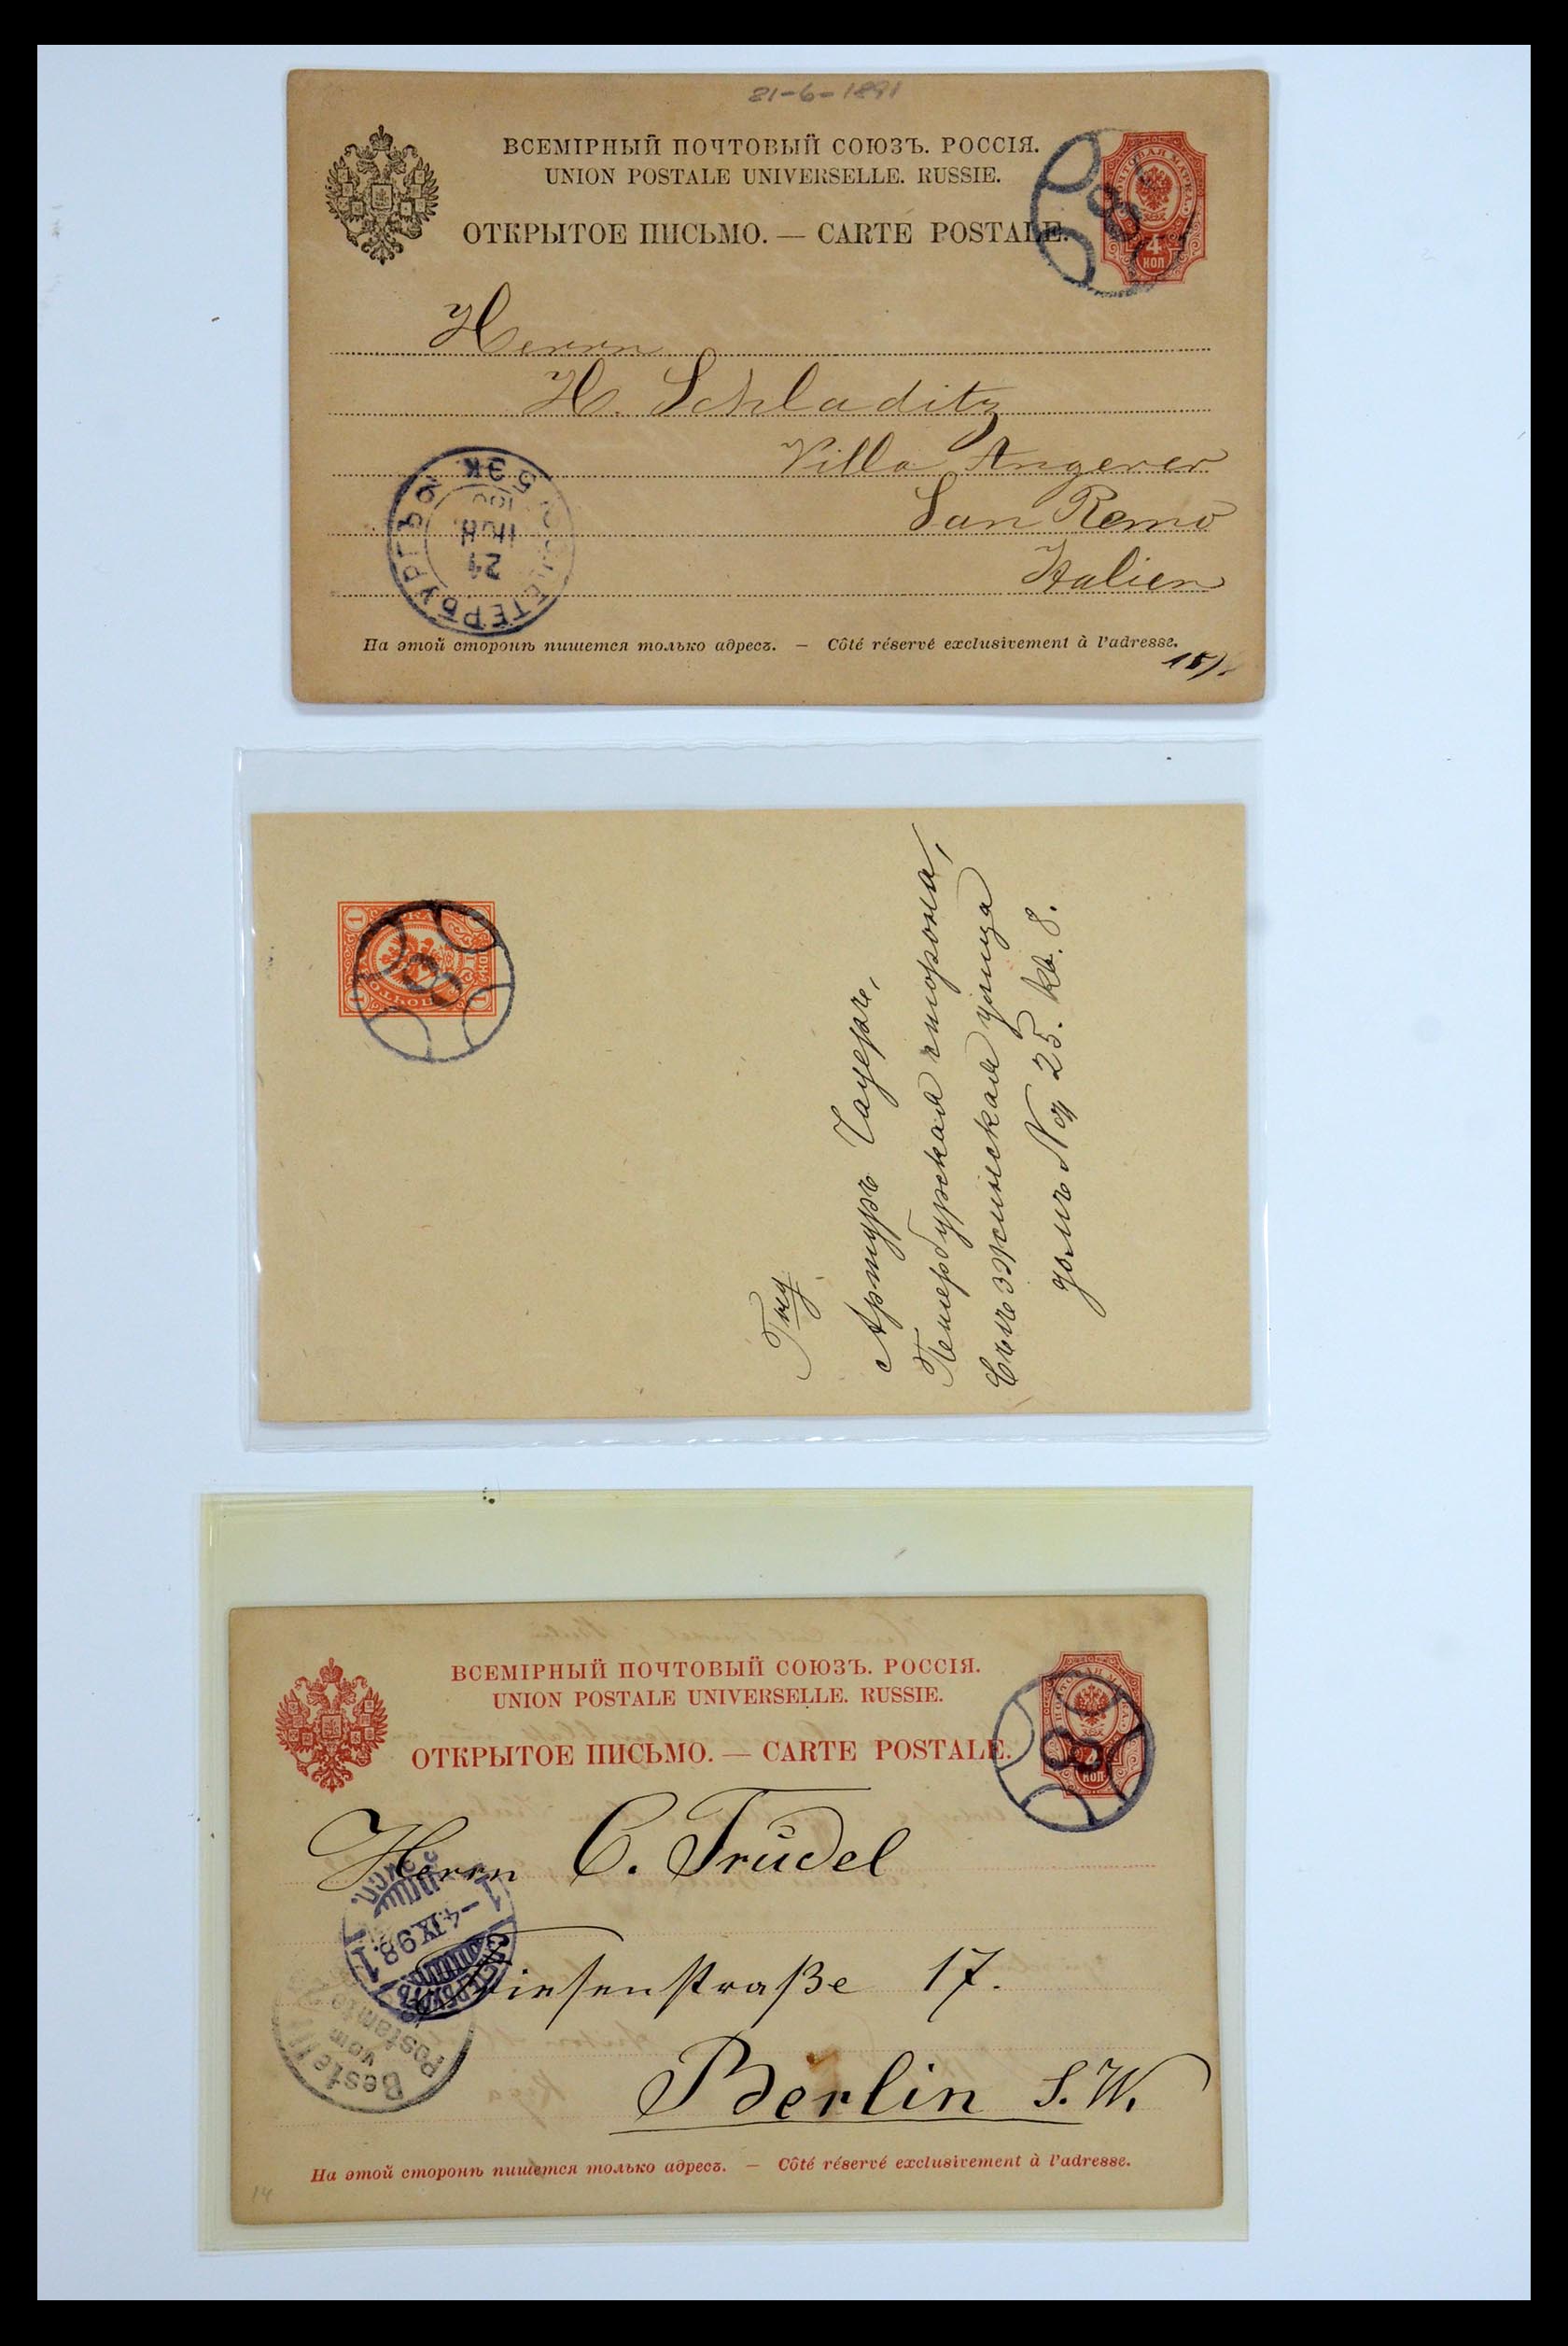 21-6-1891
ВСЕМІРНЫЙ ПОЧТОВЫЙ СОЮЗЪ. РОССІЯ.
UNION POSTALE UNIVERSELLE. RUSSIE.
ОТКРЫТОЕ ПИСЬМО. — CARTE POSTALE.
ПОЧТОВАЯ МАРКА
4
КОП
8
Herrn
H. Schladitz
Villa Angerer
San Remo
Italien
5 ЭК.
21
ІЮН
На этой сторонѣ пишется только адресъ. — Côté réservé exclusivement à l'adresse.
1
1
1
1
8
Артуръ
Петербурская сторона,
Съѣзжинская улица
домъ № 25. кв. 8.
ВСЕМІРНЫЙ ПОЧТОВЫЙ СОЮЗЪ. РОССІЯ.
UNION POSTALE UNIVERSELLE. RUSSIE.
ОТКРЫТОЕ ПИСЬМО. — CARTE POSTALE.
ПОЧТОВАЯ МАРКА
4
КОП
8
Herrn C. Trudel
17.
Berlin S.W.
1
-4.IX98.1
С.ПЕТЕРБУРГЪ
Bestellt
vom
Postamte
На этой сторонѣ пишется только адресъ. — Côté réservé exclusivement à l'adresse.
14